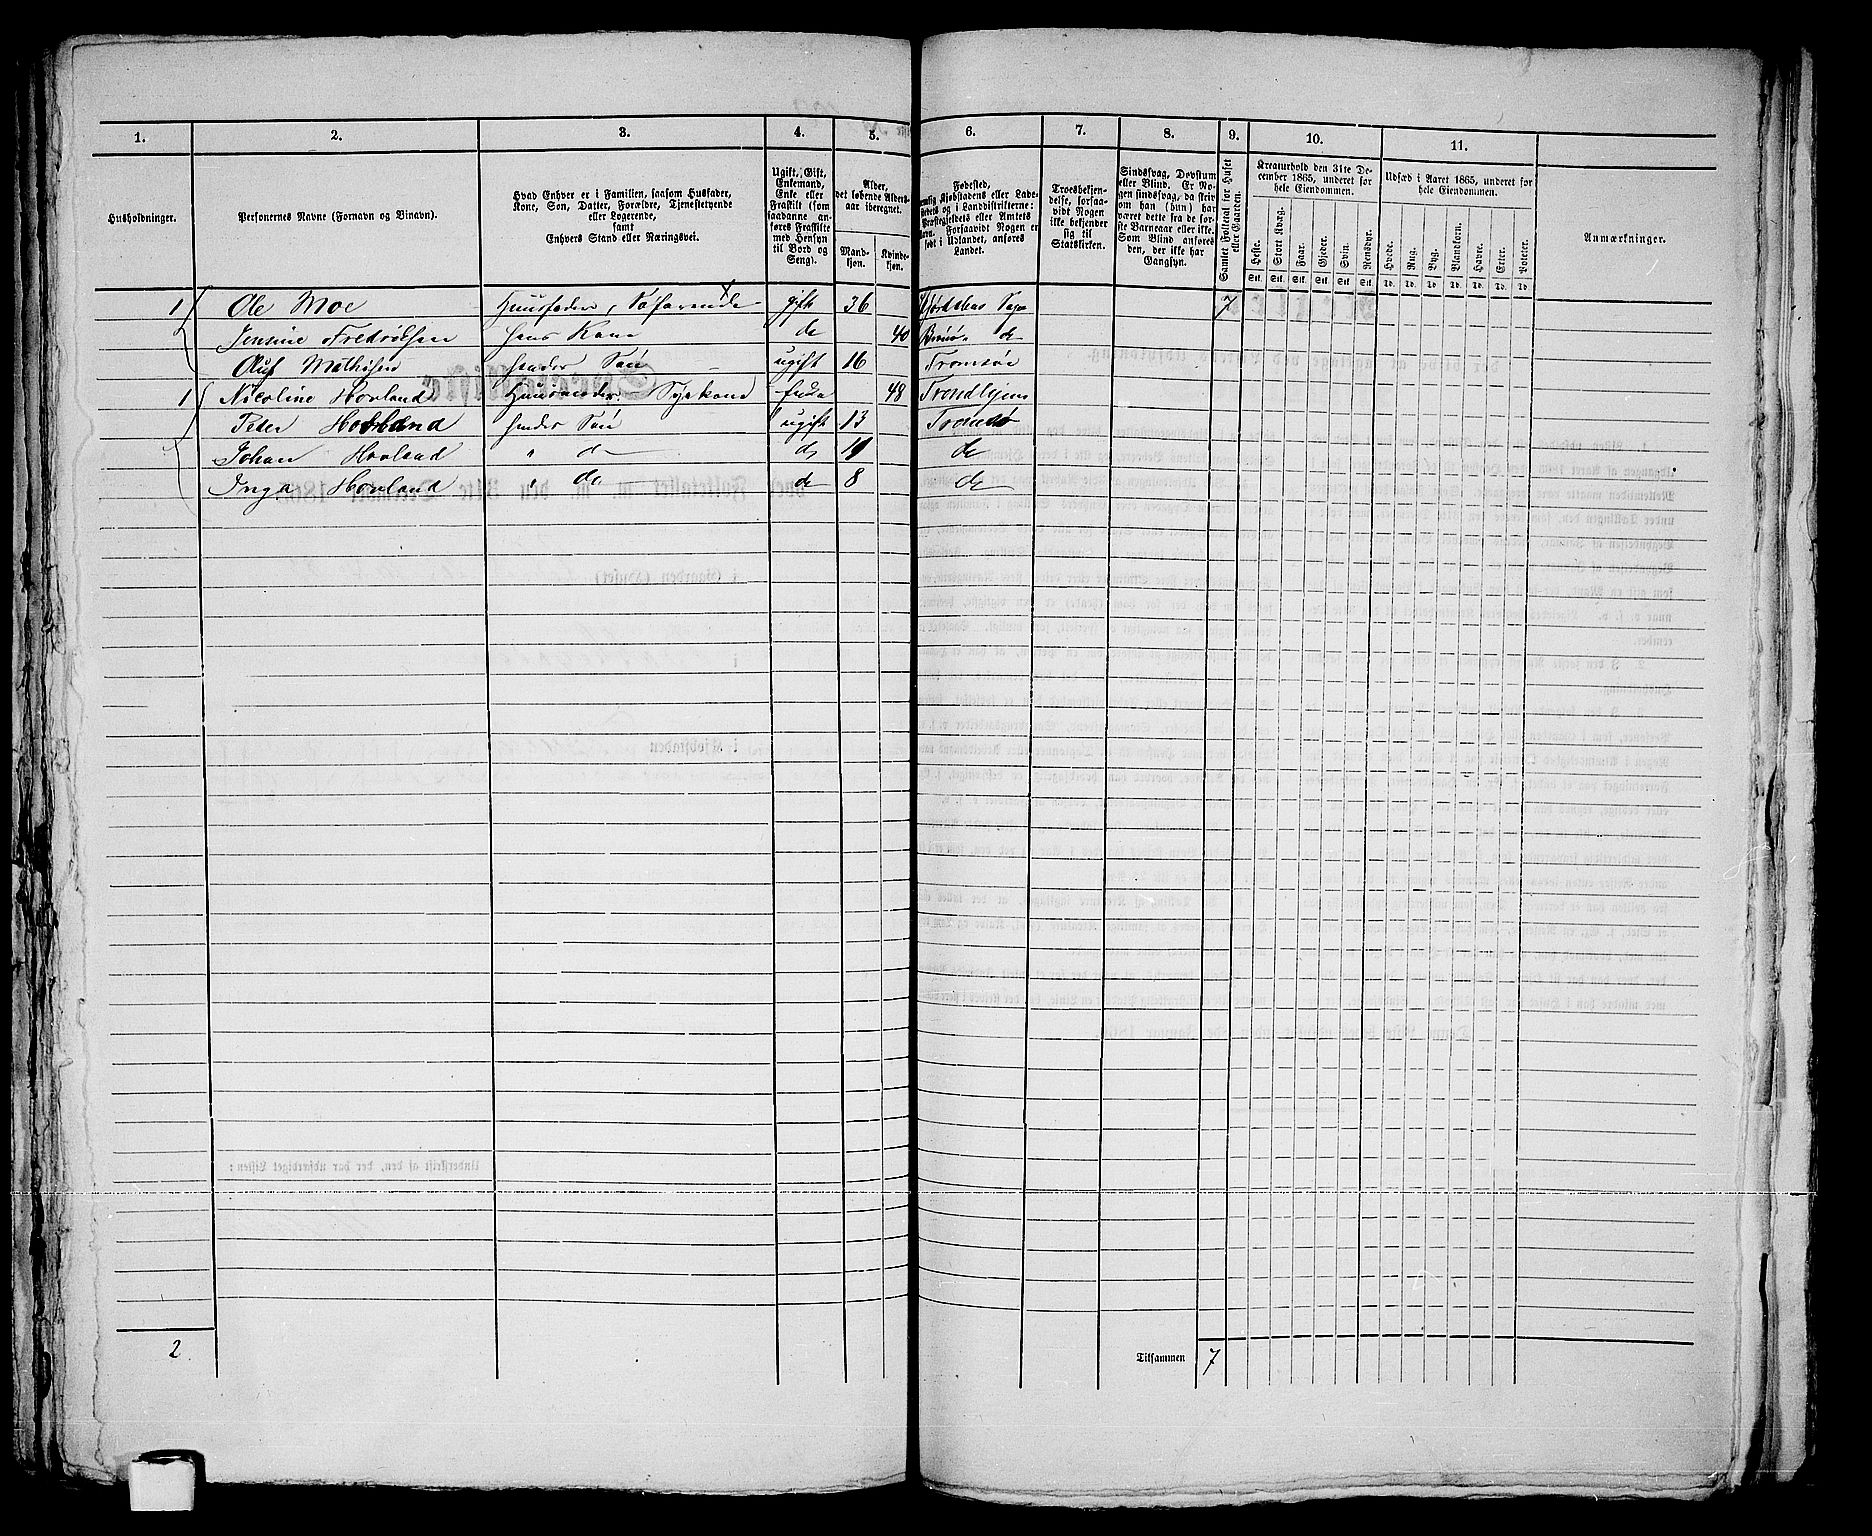 1. 2. 3. 4. 5. 6. 7. 8. 9. 10. 11.
Husholdninger.
Personernes Navne (Fornavn og Binavn).
Hvad Enhver er i Familien, saasom Husfader,
Kone, Søn, Datter, Forældre, Tjenestetyende
eller Logerende,
samt
Enhvers Stand eller Næringsvei.
Ugift, Gift,
Enkemand,
Enke eller
Fraskilt (som
saadanne an-
føres Fraskilte
med Hensyn
til Bord og
Seng).
Alder,
det løbende Alders-
aar iberegnet.
Mand-
kjøn.
Kvinde-
kjøn.
Fødested,
nemlig Kjøbstadens eller Lade-
stedets og i Landdistrikterne:
Præstegjeldets eller Amtets
Navn. Forsaavidt Nogen er
født i Udlandet, anføres
Landet.
Troesbekjen-
delse, forsaa-
vidt Nogen
ikke bekjender
sig til
Statskirken.
Sindssvag, Døvstum
eller Blind. Er No-
gen sindssvag, da skriv
om han (hun) har
været dette fra de før-
ste Barneaar eller ikke.
Som Blind ansøres
den, der ikke har
Gangsyn.
Samlet Folketal for Huset
eller Gaarden.
Kreaturhold den 31te De-
cember 1865, underet for
hele Eiendommen.
Heste. Stort Kvæg. Faar. Gjeder. Svin. Rensdyr.
Stk. Stk. Stk. Stk. Stk. Stk.
Udsæd i Aaret 1865, underet for
hele Eiendommen.
Hvede. Rug. Byg. Blandkorn. Havre. Erter. Poteter.
Td. Td. Td. Td. Td. Td. Td.
Anmærkninger.
1 Ole Moe Huusfader, Søfarende gift 36 7
Jensine Fredriksen hans Kone do 40 do
Oluf Mathisen hendes Søn ugift 16 Tromsøe
1 Nicoline Hovland Huusmoder Syekone 48 Trondhjem
Peder Hovland hendes Søn ugift 13 Tromsø
Johan Hovland " do do 11 do
Inga Hovland " do do 8 do
2 Tilsammen 7